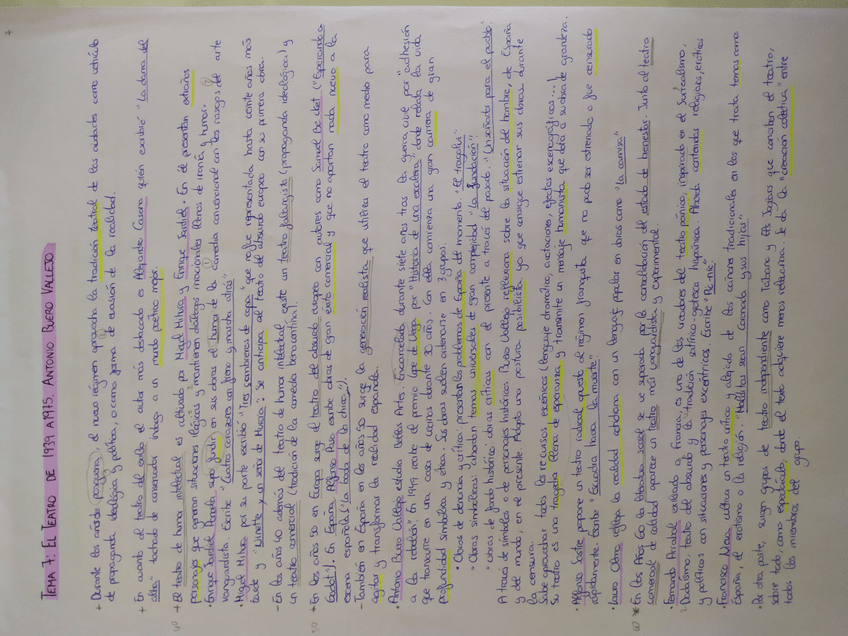 TEMA 7: EL TEATRO DE 1939 A 1975. ANTONIO BUERO VALLEJO.
+ Durante los años posguerra, el nuevo régimen aprovecha la tradición teatral de las ciudades como vehículo
de propaganda ideológica y política, o como forma de evasión de la realidad.
+ En cuanto al teatro del exilio el autor más destacado es Alejandro Casona quién escribió "La dama del
alba" teatrado de conservador, indago a un mundo poético mejor.
40 + El teatro de humor intelectual es cultivado por Miguel Mihura y Enrique Jardiel. En él presentan extraños
personajes que generan situaciones ilógicas y mantienen diálogos irracionales llenos de ironía y humor.
• Enrique Jardiel Poncela supo fundir en sus obras el humor de la comedia convencional con los rasgos del arte
vanguardista. Escribe "Cuatro corazones con freno y marcha atrás"
• Miguel Mihura por su parte escribió "Tres sombreros de copa" que no fue representada hasta veinte años más
tarde y "Ninette y un señor de Murcia". Se anticipa al teatro del absurdo europeo con su primera obra.
- En los años 40 además del teatro de humor intelectual existe un teatro falangista (propaganda ideológica) y
un teatro comercial (tradición de la comedia benaventina).
50 + En los años 50 en Europa surge el teatro del absurdo europeo con autores como Samuel Becket ("Esperando a
Godot"). En España, Alfonso Paso escribe obras de gran éxito comercial y que no aportan nada nuevo a la
escena española ("La boda de la chica").
- También en España en los años 50 surge la generación realista que utiliza el teatro como medio para
agitar y transformar la realidad española.
• Antonio Buero Vallejo estudia Bellas Artes. Encarcelado durante siete años tras la guerra civil por "adhesión
a la rebelión". En 1949 recibe el premio Lope de Vega por "Historia de una escalera", donde relata la vida
que transcurre en una casa de vecinos durante 30 años. Con ella comienza una gran carrera de gran
profundidad simbólica y ética. Sus obras suelen ordenarse en 3 grupos:
• Obras de denuncia y crítica: presentan los problemas de España del momento. "El tragaluz"
• Obras simbólicas: abordan temas universales de gran complejidad "La fundación"
• Obras de fondo histórico: obras críticas con el presente a través del pasado. "Un soñador para el pueblo".
A través de símbolos o de personajes históricos Buero Vallejo reflexiona sobre la situación del hombre, de España
y del mundo, en el presente. Adopta una postura posibilista ya que consigue estrenar sus obras durante
la censura.
Sabe aprovechar todos los recursos escénicos (lenguaje dramático, acotaciones, efectos escenográficos...)
Su teatro es una tragedia llena de esperanza y transmite un mensaje humanista que dota a su obra de grandeza.
• Alfonso Sastre propone un teatro radical opuesto al régimen franquista que no pudo ser estrenado o fue censurado
rápidamente. Escribe "Escuadra hacia la muerte".
• Lauro Olmo refleja la realidad cotidiana con un lenguaje popular en obras como "La camisa"
60 + En los Años 60 la literatura social se ve superada por la consolidación del estado de bienestar. Junto al teatro
comercial de calidad aparece un teatro más vanguardista y experimental.
• Fernando Arrabal exiliado a Francia, es uno de los creadores del teatro pánico, inspirado en el Surrealismo,
Dadaísmo, teatro del absurdo y la tradición satírico-grotesca hispánica. Aborda contenidos religiosos, eróticos
y políticos con situaciones y personajes excéntricos. Escribe "Pic-nic".
• Francisco Nieva, cultiva un teatro crítico y alejado de los cánones tradicionales en los que trata temas como
España, el erotismo o la religión.
• Por otra parte, surgen grupos de teatro independiente como Tábano y Els Joglars que conciben el teatro,
sobre todo, como espectáculo, donde el texto adquiere menos relevancia. Se da la "creación colectiva" entre
todos los miembros del grupo.